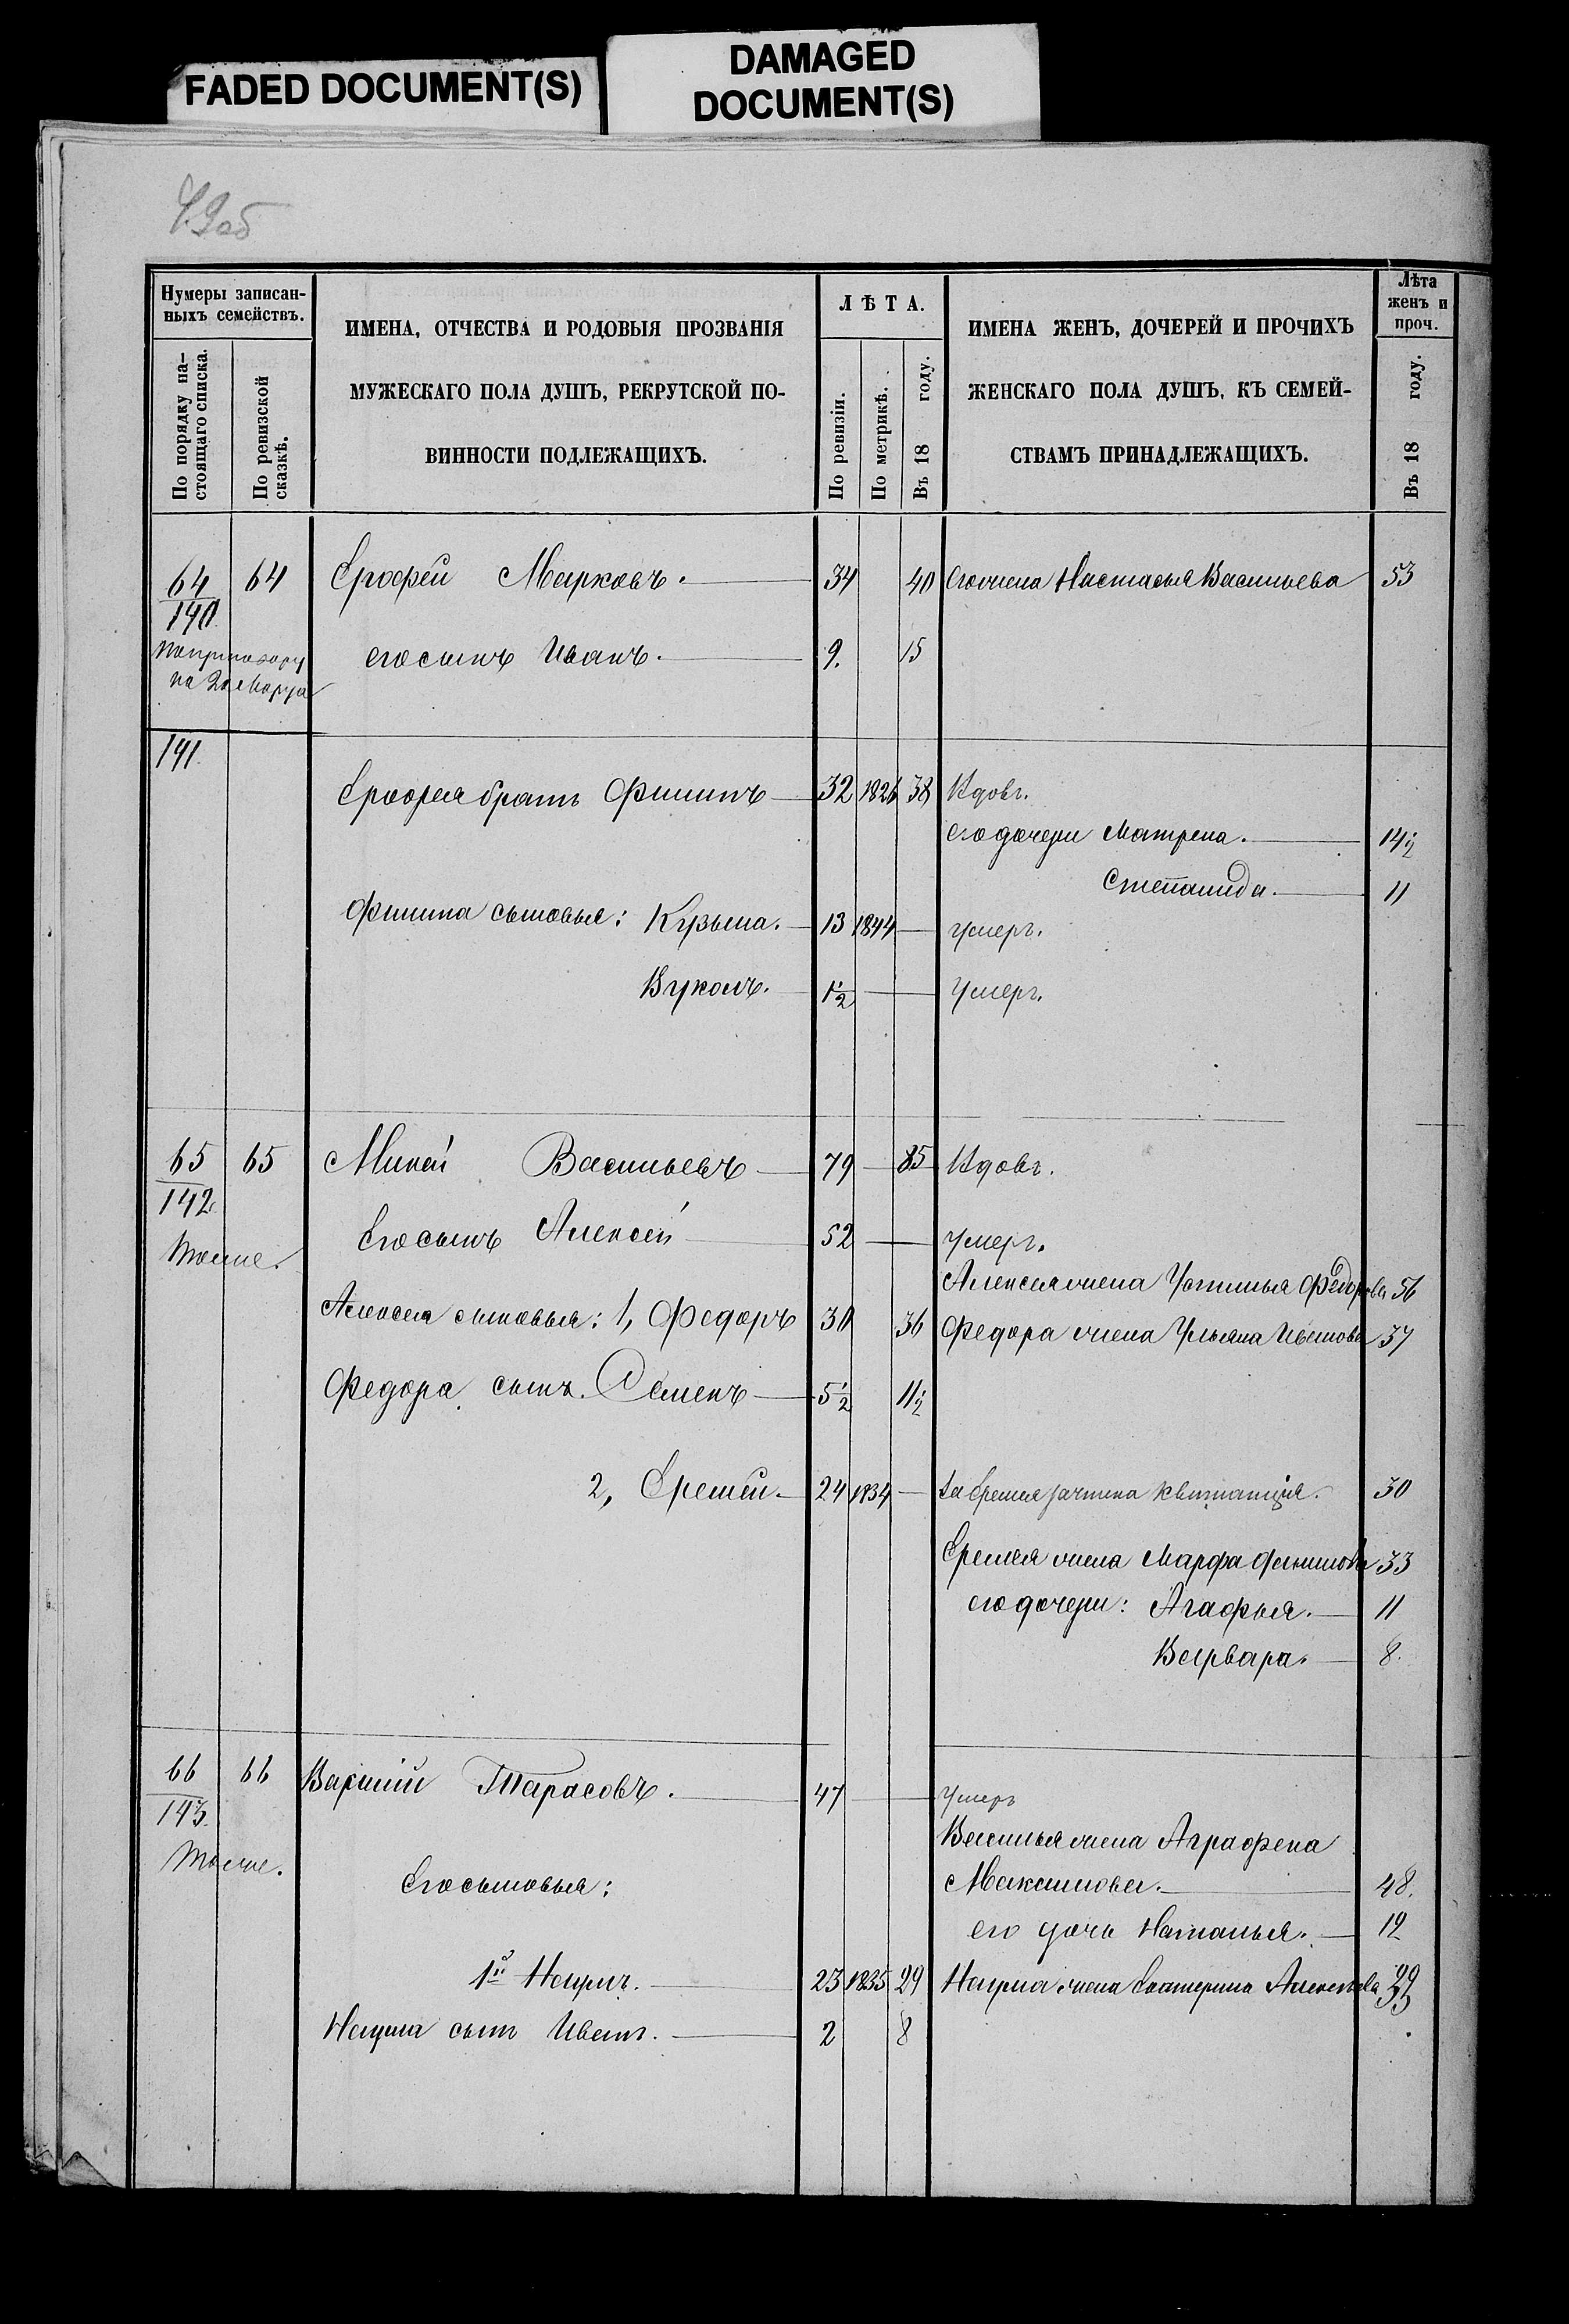 FADED DOCUMENT(S)
DAMAGED
DOCUMENT(S)
Нумеры записан-
ныхъ семействъ.
По порядку на-
стоящаго списка.
По ревизской
сказкѣ.
ИМЕНА, ОТЧЕСТВА И РОДОВЫЯ ПРОЗВАНІЯ
МУЖЕСКАГО ПОЛА ДУШЪ, РЕКРУТСКОЙ ПО-
ВИННОСТИ ПОДЛЕЖАЩИХЪ.
ЛѢТА.
По ревизіи.
По метрикѣ.
Въ 18 году.
ИМЕНА ЖЕНЪ, ДОЧЕРЕЙ И ПРОЧИХЪ
ЖЕНСКАГО ПОЛА ДУШЪ, КЪ СЕМЕЙ-
СТВАМЪ ПРИНАДЛЕЖАЩИХЪ.
Лѣта
женъ и
проч.
Въ 18 году.
64 64 Ерофей Марковъ. 34 40 Его жена Настасья Васильева 53
140
По приговору его сынъ Иванъ. 9. 15
на Марта
141.
Ерофея братъ Филипъ 32 1826 38 Вдовъ.
его дочери Матрена. 14½
Степанида. 11
Филипа сыновья: Кузьма. 13 1844 умеръ.
Вуколъ. 1½ Умеръ.
65 65 Михей Васильевъ 79 85 Вдовъ.
142
Его сынъ Алексей 52 умеръ.
Тоже.
Алексея жена Устинья Федорова 56
Алексея сыновья: 1, Федоръ 30 36 Федора жена Ульяна Иванова 37
Федора сынъ Семенъ 5½ 11½
2, Еремей 24 1834 За Еремея зачтена квитанція. 30
Еремея жена Марфа Филипова 33
его дочери: Агафья. 11
Варвара. 8.
66 66 Василій Тарасовъ. 47 Умеръ
143.
Василья жена Аграфена
Тоже.
Его сыновья: Максимова. 48.
его дочь Наталья. 12
1й Наумъ. 23 1835 29 Наума жена Екатерина Алексеева
Наума сынъ Иванъ. 2 8